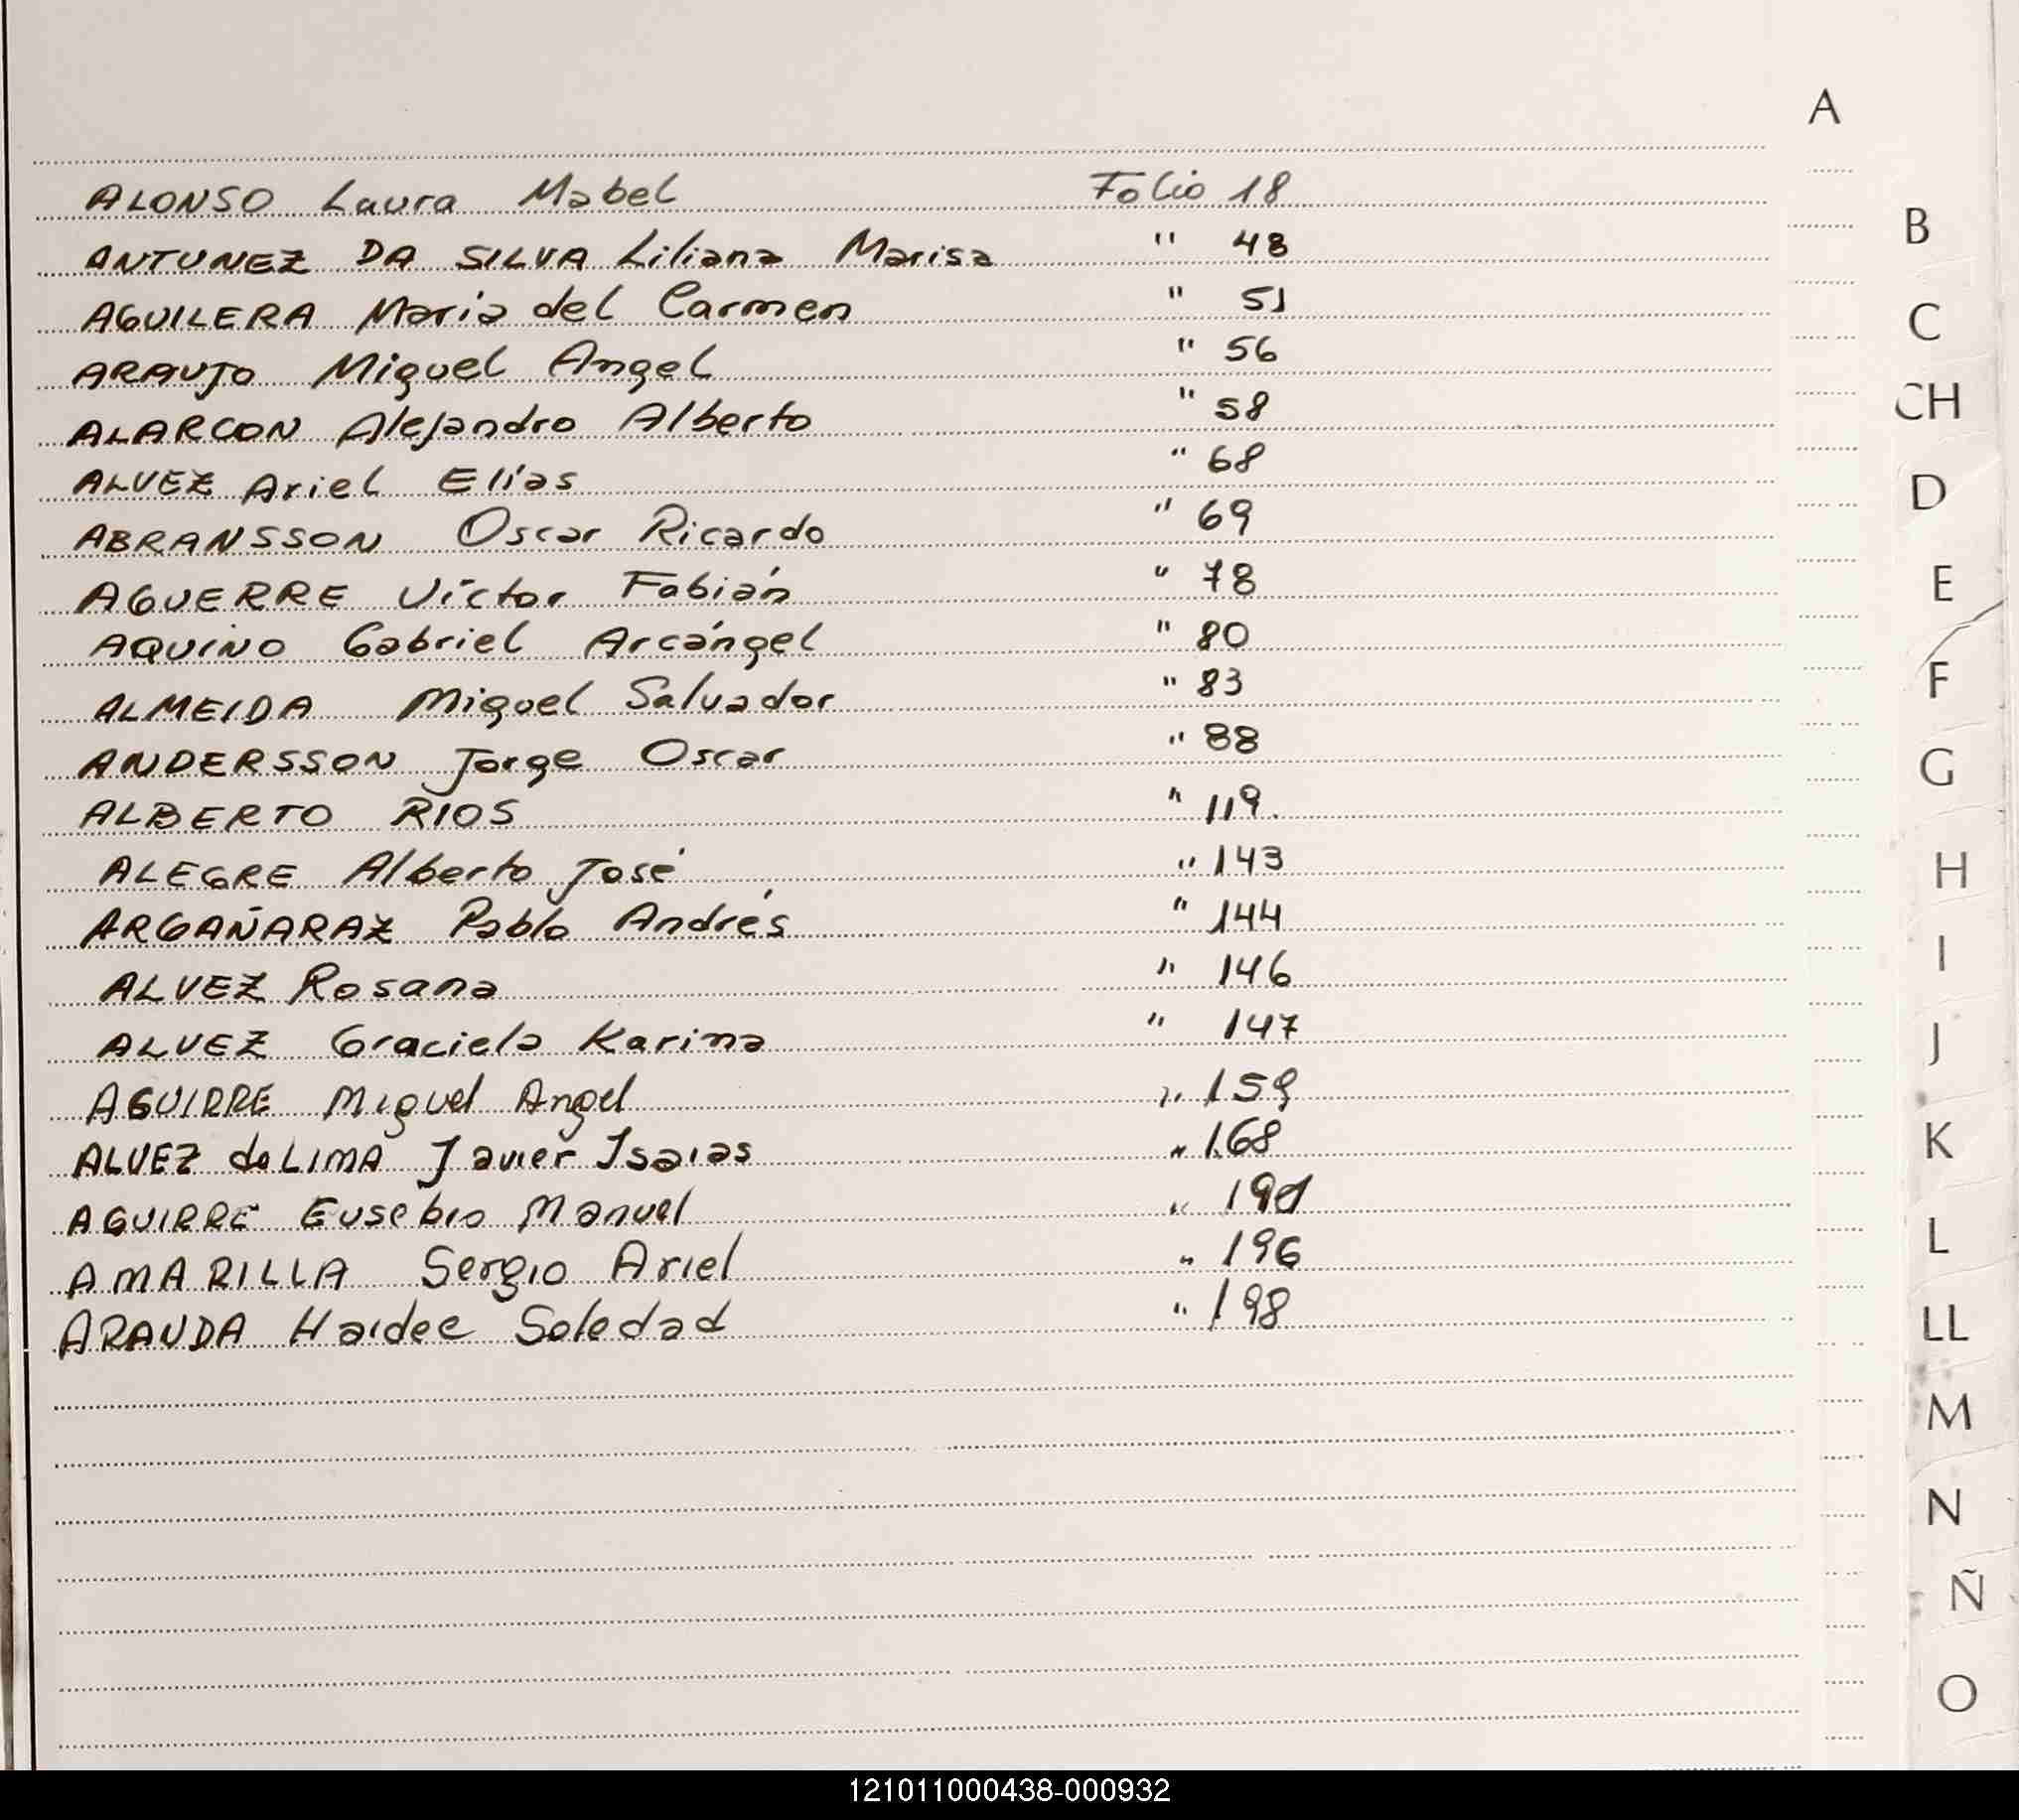 A
ALONSO Laura Mabel Folio 18
ANTUNEZ DA SILVA Liliana Marisa " 48
AGUILERA María del Carmen " 51
ARAUJO Miguel Angel " 56
ALARCON Alejandro Alberto " 58
ALVEZ Ariel Elías " 68
ABRANSSON Oscar Ricardo " 69
AGUERRE Víctor Fabián " 78
AQUINO Gabriel Arcángel " 80
ALMEIDA Miguel Salvador " 83
ANDERSSON Jorge Oscar " 88
ALBERTO RIOS " 119.
ALEGRE Alberto José " 143
ARGAÑARAZ Pablo Andrés " 144
ALVEZ Rosana " 146
ALVEZ Graciela Karina " 147
AGUIRRE Miguel Angel " 159
ALVEZ da LIMA Javier Isaias " 168
AGUIRRE Eusebio Manuel "
AMARILLA Sergio Ariel " 196
ARANDA Haidee Soledad " 198
B
C
CH
D
E
F
G
H
I
J
K
L
LL
M
N
Ñ
O
121011000438-000932